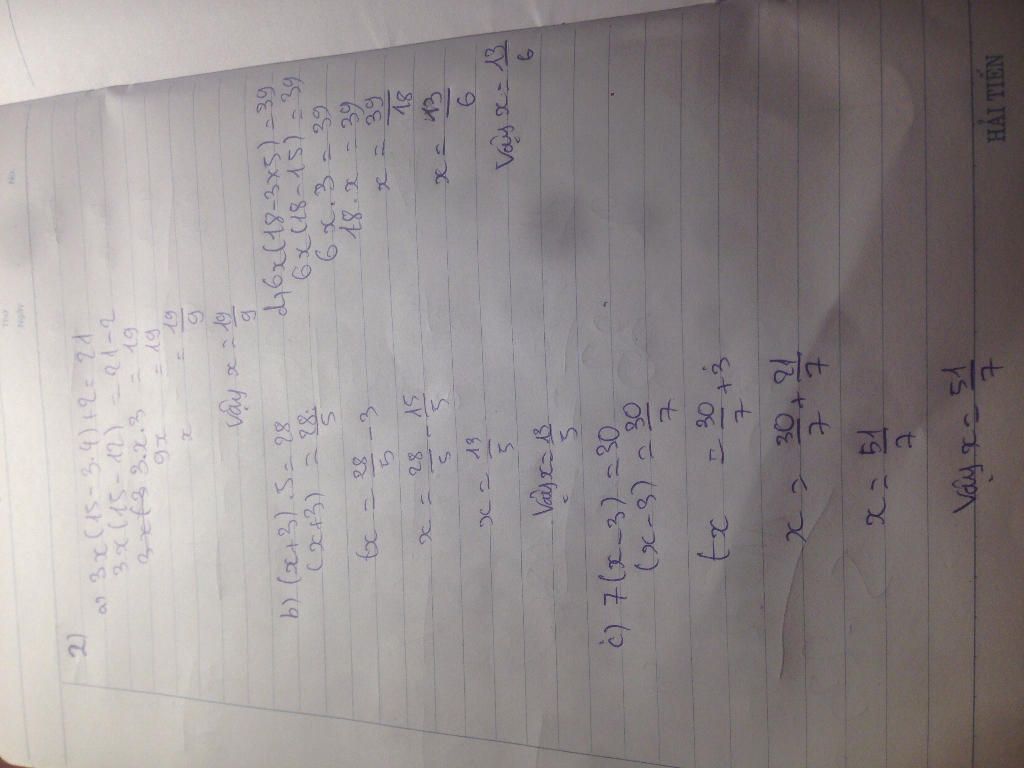 No.
Thứ
Ngày
2)
a) 3x(15-3.4)+2=21
3x(15-12) = 21-2
3x.3 = 19
9x = 19
x = 19/9
Vậy x = 19/9
b) (x+3).5=28
(x+3) = 28/5
(x = 28/5 - 3
x = 28/5 - 15/5
x = 13/5
Vậy x = 13/5
c) 7(x-3)=30
(x-3) = 30/7
(x = 30/7 + 3
x = 30/7 + 21/7
x = 51/7
Vậy x = 51/7
d) 6x(18-3x5)=39
6x(18-15) = 39
6x.3 = 39
18.x = 39
x = 39/18
x = 13/6
Vậy x = 13/6
HẢI TIẾN